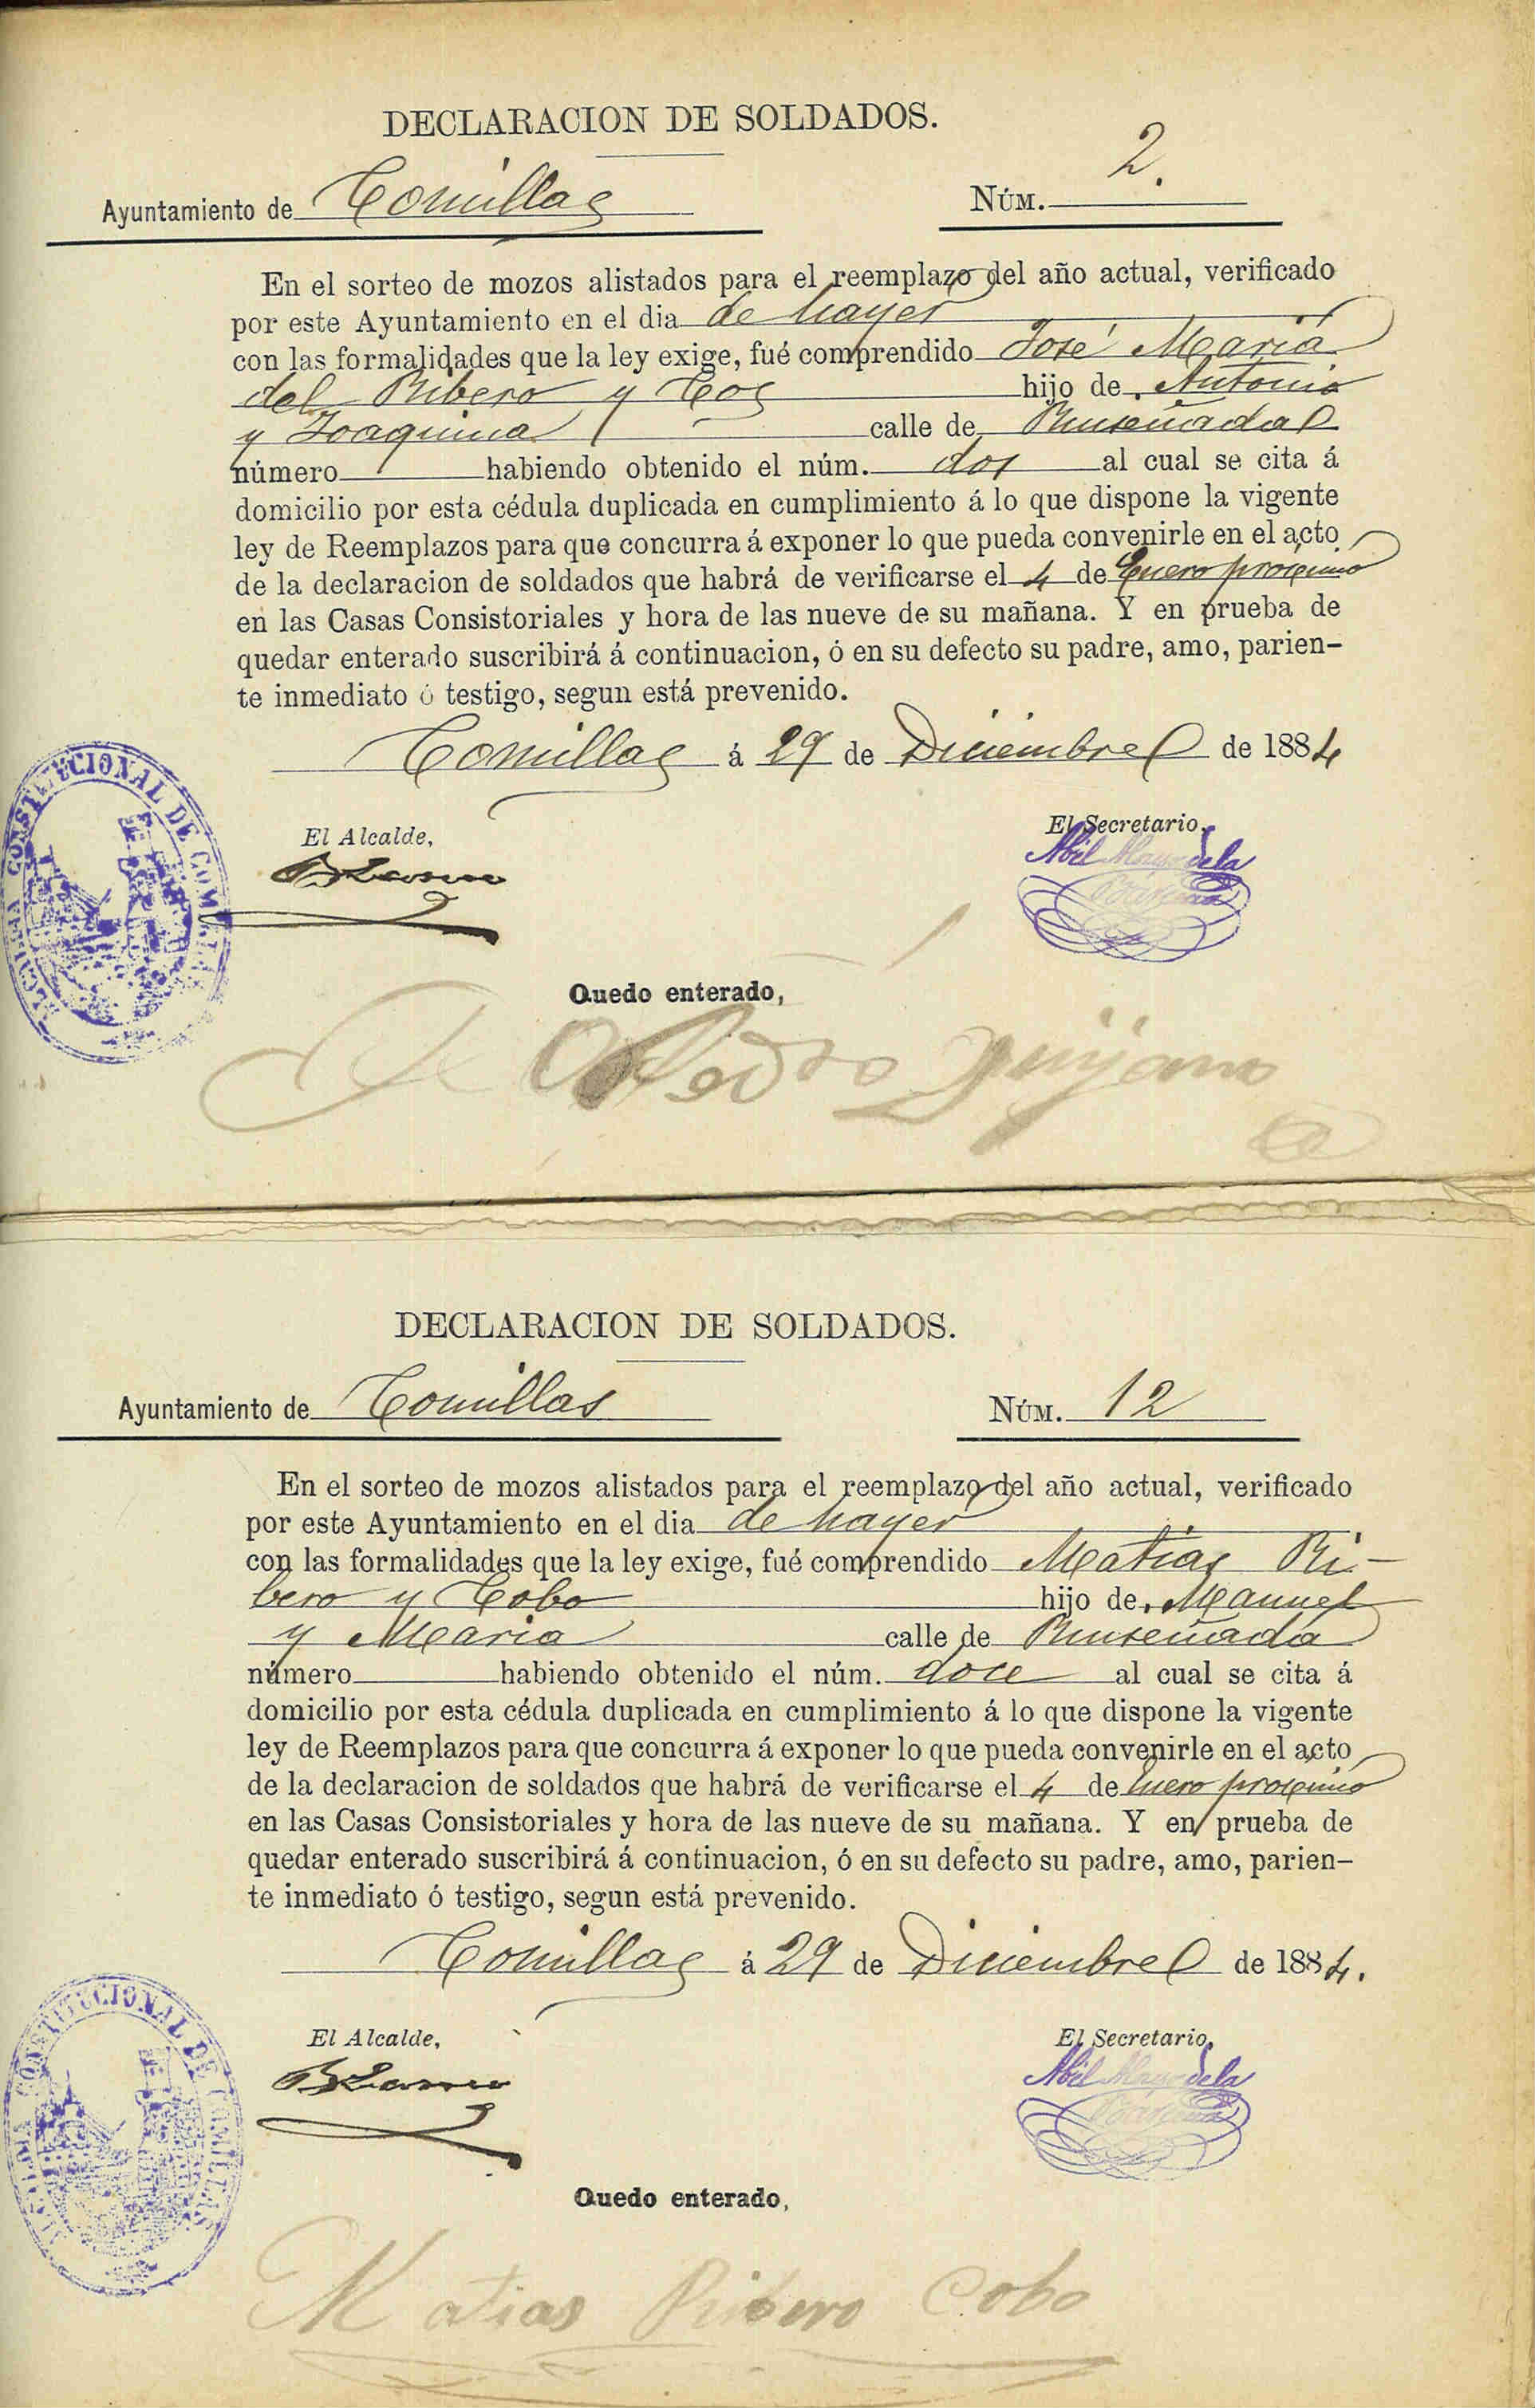 DECLARACION DE SOLDADOS.
Ayuntamiento de Comillas NÚM. 2.
En el sorteo de mozos alistados para el reemplazo del año actual, verificado
por este Ayuntamiento en el dia de hayer
con las formalidades que la ley exige, fué comprendido José María
del Ribero y Cos hijo de Antonio
y Joaquina calle de Ruiseñada
número habiendo obtenido el núm. dos al cual se cita á
domicilio por esta cédula duplicada en cumplimiento á lo que dispone la vigente
ley de Reemplazos para que concurra á exponer lo que pueda convenirle en el acto
de la declaracion de soldados que habrá de verificarse el 4 de Enero proximo
en las Casas Consistoriales y hora de las nueve de su mañana. Y en prueba de
quedar enterado suscribirá á continuacion, ó en su defecto su padre, amo, parien-
te inmediato ó testigo, segun está prevenido.
Comillas á 29 de Diciembre de 1884
El Alcalde, El Secretario,
Abel de la
ALCALDIA CONSTITUCIONAL DE COMILLAS
Quedo enterado,
Pedro Quijano
DECLARACION DE SOLDADOS.
Ayuntamiento de Comillas NÚM. 12
En el sorteo de mozos alistados para el reemplazo del año actual, verificado
por este Ayuntamiento en el dia de hayer
con las formalidades que la ley exige, fué comprendido Matías Ri-
bero y Cobo hijo de Manuel
y Maria calle de Ruiseñada
número habiendo obtenido el núm. doce al cual se cita á
domicilio por esta cédula duplicada en cumplimiento á lo que dispone la vigente
ley de Reemplazos para que concurra á exponer lo que pueda convenirle en el acto
de la declaracion de soldados que habrá de verificarse el 4 de Enero proximo
en las Casas Consistoriales y hora de las nueve de su mañana. Y en prueba de
quedar enterado suscribirá á continuacion, ó en su defecto su padre, amo, parien-
te inmediato ó testigo, segun está prevenido.
Comillas á 29 de Diciembre de 1884.
El Alcalde, El Secretario,
Abel de la
ALCALDIA CONSTITUCIONAL DE COMILLAS
Quedo enterado,
Matias Ribero Cobo